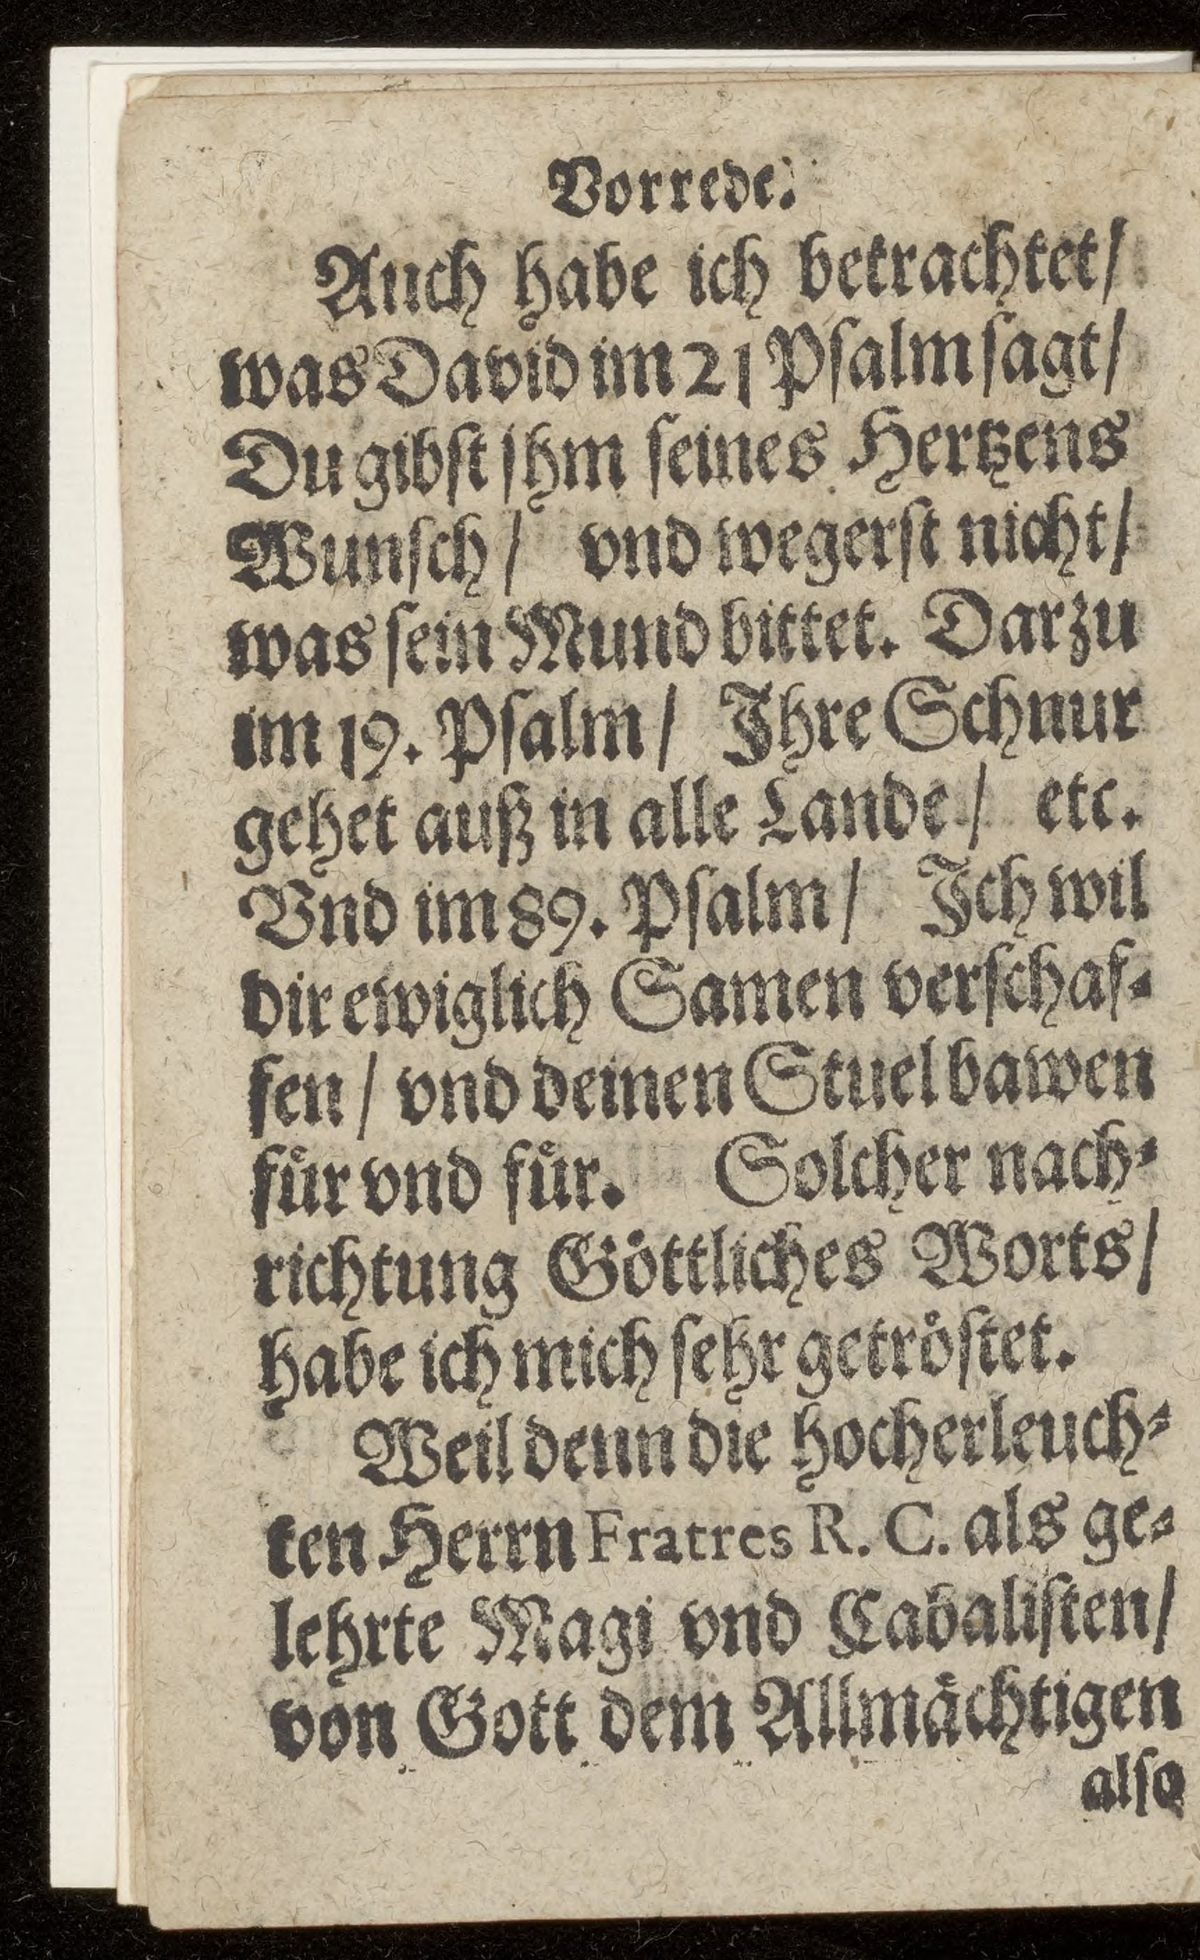 Vorrede.
Auch habe ich betrachtet/
was David im 21 Psalm sagt/
Du gibst jhm seines Hertzens
Wunsch/ vnd wegerst nicht/
was sein Mund bittet. Darzu
im 19. Psalm/ Jhre Schnur
gehet auß in alle Lande/ etc.
Vnd im 89. Psalm/ Jch wil
dir ewiglich Samen verschaf-
fen/ vnd deinen Stuel bawen
fuͤr vnd fuͤr. Solcher nach-
richtung Goͤttliches Worts/
habe ich mich sehr getroͤstet.
Weil denn die hocherleuch-
ten Herrn Fratres R. C. als ge-
lehrte Magi vnd Cabalisten/
von Gott dem Allmaͤchtigen
also